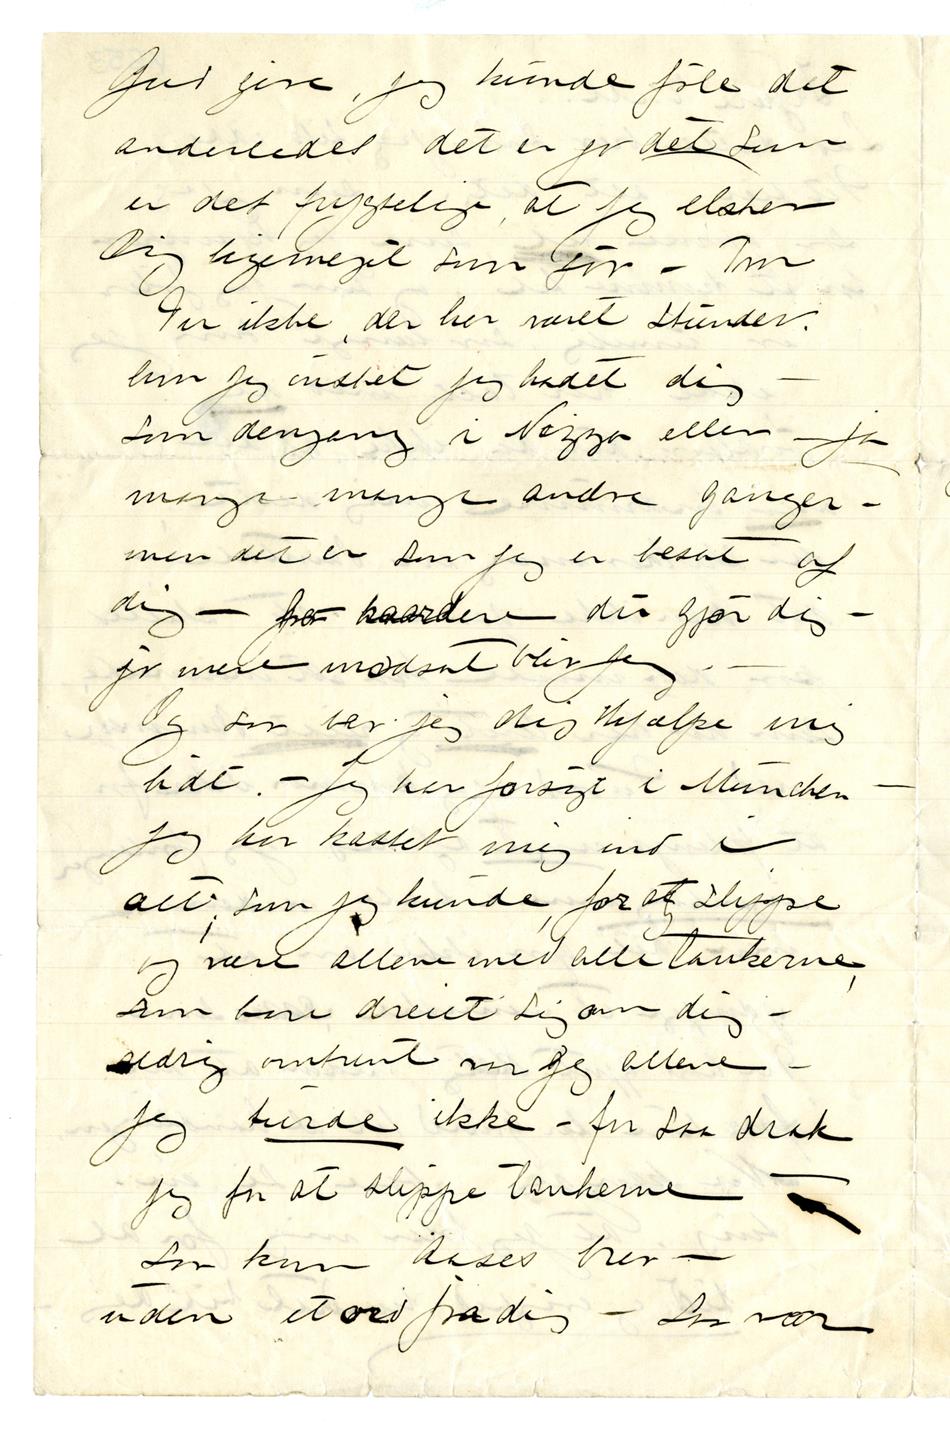 Gud give, jeg kunde føle det
anderledes det er jo det som
er det frygtelige, at jeg elsker
Dig ligemeget som før – Tror
Du ikke, der har været stunder.
hvor jeg ønsket jeg hadet dig –
som dengang i Nizza eller – ja
mange – mange andre ganger –
men det er som jeg er besat af
dig – jo haardere du gjør dig –
jo mere modsat blir jeg. –
Og saa ber jeg dig hjælpe mig
lidt. – Jeg har forsøgt i München –
jeg har kastet mig ind i
alt, som jeg kunde, for at slippe
og være allene med alle tankerne,
som bare dreiet sig om dig –
aldrig omtrent var jeg allene –
jeg turde ikke – for saa drak
jeg for at slippe tankerne –
Saa kom Aases brev –
uden et ord fra dig – Saa var